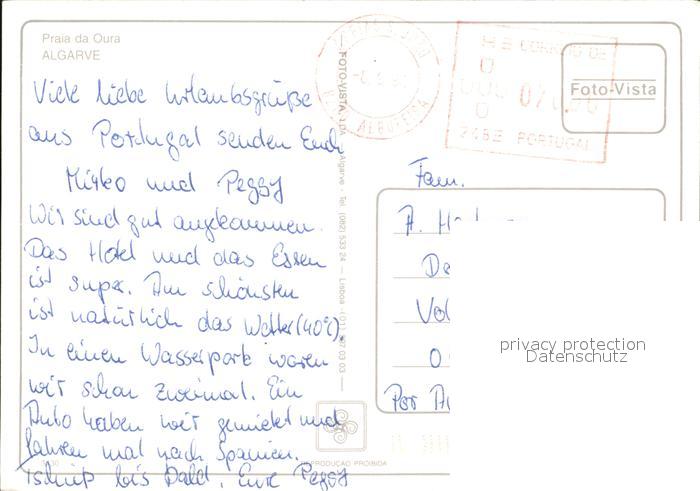 Praia da Oura
ALGARVE
Viele liebe Urlaubsgrüße
aus Portugal senden Euch
Mirko und Peggy
Wir sind gut angekommen.
Das Hotel und das Essen
ist super. Am schönsten
ist natürlich das Wetter (40°C)
In einen Wasserpark waren
wir schon zweimal. Ein
Auto haben wir gemietet und
fahren mal nach Spanien.
Tschüß bis bald. Eure Peggy
FOTO-VISTA, LDA
Algarve - Tel. (082) 533 24 — Lisboa - (01)
03 03
CORREIO DE
PORTUGAL
ALBUFEIRA
Foto-Vista
Fam.
A.
De
Vol
O
Par
privacy protection
Datenschutz
REPRODUÇÃO PROIBIDA